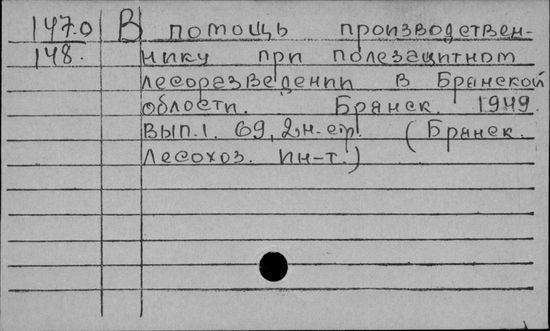 1470 В помощь производствен-
148. нику при полезащитном
лесоразведении в Брянской
области. Брянск. 1949.
Вып.1. 69, 2н. стр. (Брянск.
лесохоз. ин-т.)